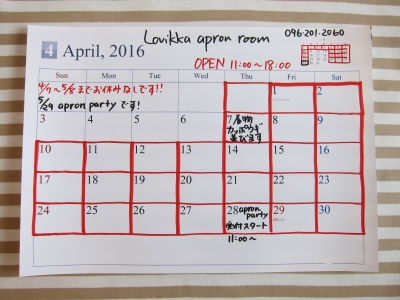 Lovikka apron room 096.201.2060
4 April, 2016
OPEN 11:00~18:00
Sun Mon Tue Wed Thu Fri Sat
4/7~5/8までお休みなしです!!
5/29 apron partyです!
1 2
3 4 5 6 7 8 9
着物
カッポウギ
並びます
10 11 12 13 14 15 16
17 18 19 20 21 22 23
24 25 26 27 28 29 30
apron
party
受付スタート
11:00~